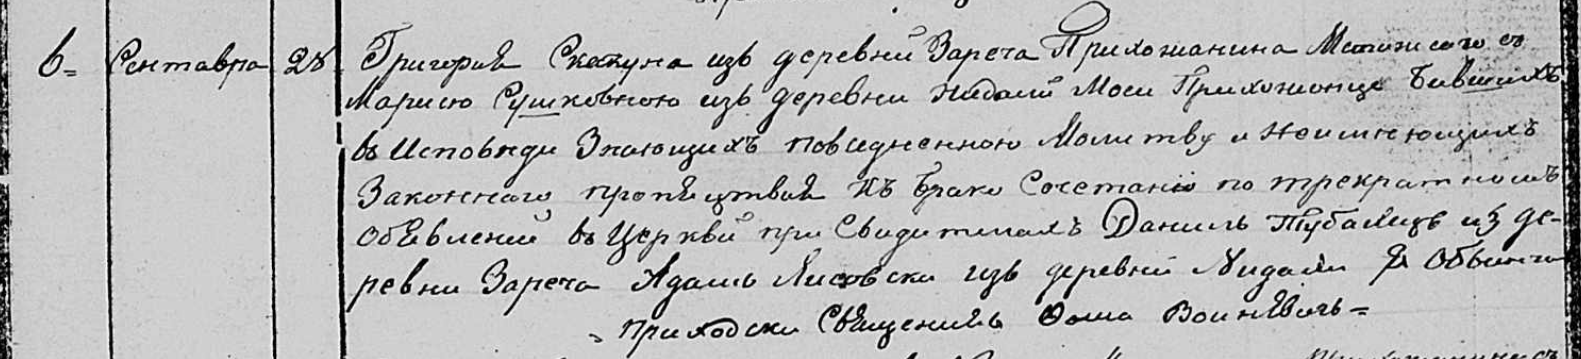 6 = Сентавра 28 Григорія Скакуна изъ деревни Зареча Прихожанина Мстижскаго съ
Марисю Сушковною изъ деревни Нидали Моей Прихожонце бывшихъ
въ Исповѣди Знающихъ повседневною Молитву и Неимеющихъ
Законнаго препяцтвія къ брако Сочетанію по трекратномъ
Обявленій въ Церкви при Свидителахъ Даниль изъ де-
ревни Зареча Адамъ Лисовски изъ деревни Нидали
Приходски Священикъ Фома Воиневичь =